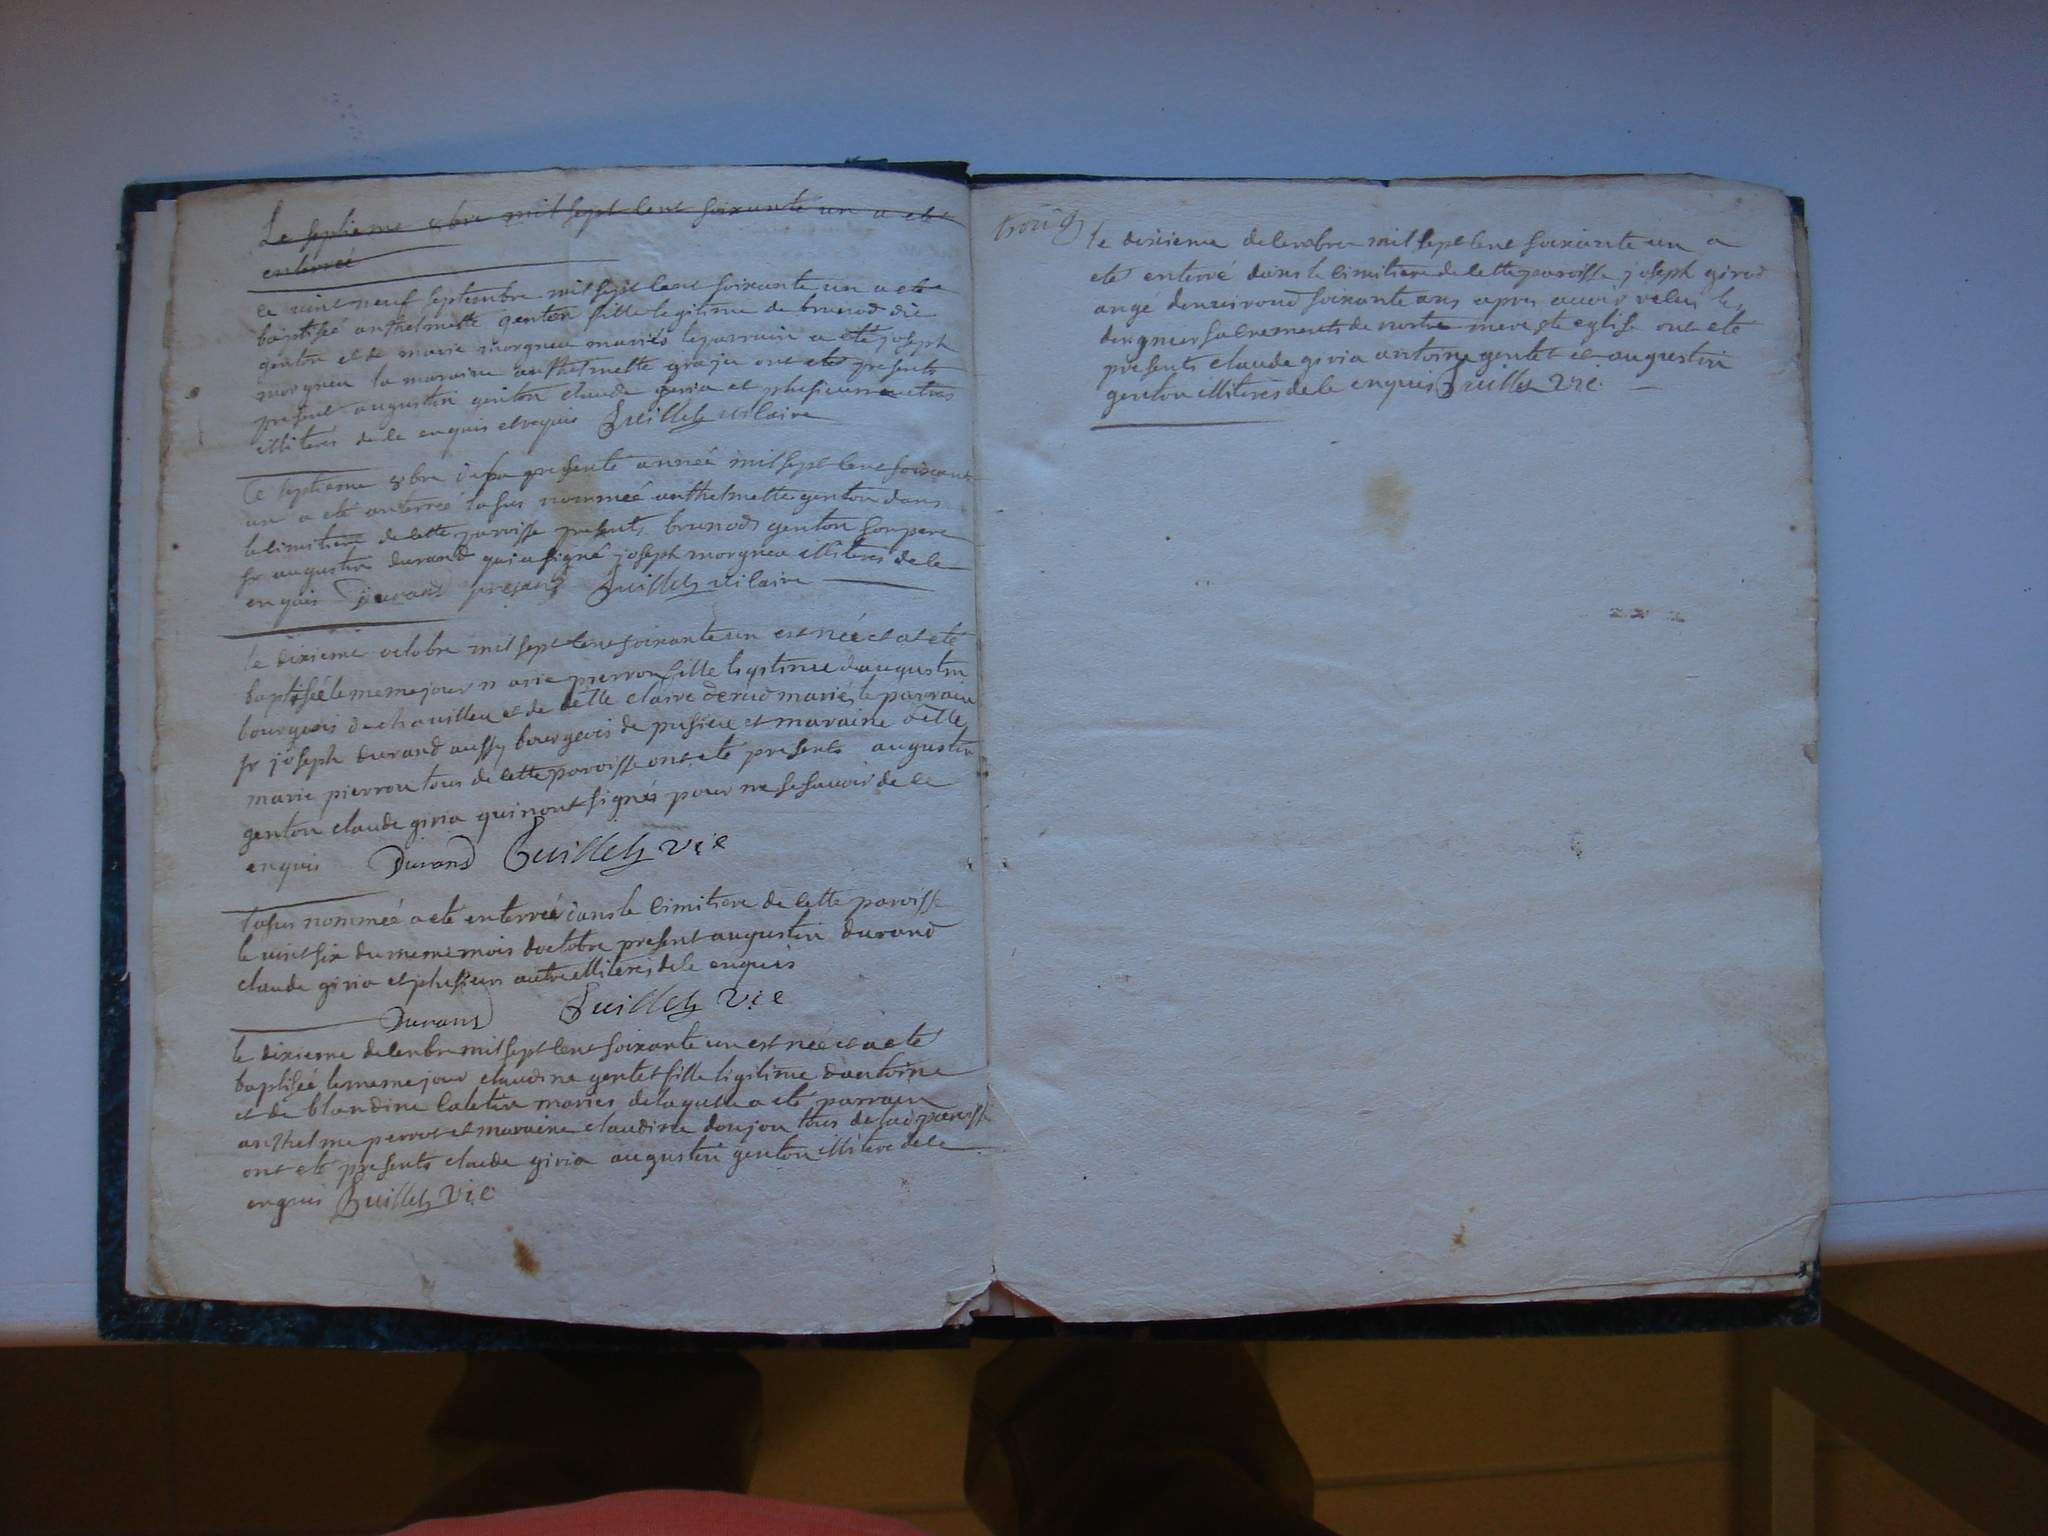 Le septieme 8bre mil sept cent soixante un a ete
enterreé
ce vint neuf septembre mil sept cent soixante un a ete
baptiseé anthelmette genton fille legitime de brunod dit
genton et de marie morgneu mariés le parrain a eté joseph
morgneu la maraine anthelmette ont ete presents
present augustin genton claude giria et plusieurs autres
illiteres de ce enquis et requis Guillet vicaire
Le septieme 8bre de la presente anneé mil sept cent soixante
un a ete anterreé la sus nommeé anthelmette genton dans
le cimitiere de cette paroisse presents brunod genton son pere
sr augustin durand qui a signé joseph morgneu illiteres de ce
enquis Durand present Guillet vicaire
le dixieme octobre mil sept cent soixante un est néé et at ete
baptiseé le meme jour marie pierron fille legitime daugustin
bourgois de chavilleu et de delle claire mariés le parrain
sr joseph durand aussy bourgeois de pusieu et maraine delle
marie pierron tous de cette paroisse ont ete presents augustin
genton claude giria qui nont signés pour ne le savoir de ce
enquis Durand Guillet vic
la sus nommeé a ete enterreé dans le cimitiere de cette paroisse
le vint six du meme mois doctobre present augustin durand
claude giria et plusieurs autre illiteres de ce enquis
Durand Guillet vic
le dixieme decembre mil sept cent soixante un est néé et a ete
baptiseé le meme jour claudine gentet fille legitime dantoine
et de blandine mariés a ete parrain
anthelme perrot et maraine claudine donjon tous de lad paroisse
ont ete presents claude giria augustin genton illitere de ce
enquis Guillet vic
le dixieme decembre mil sept cent soixante un a
eté enterré dans le cimitiere de cette paroisse joseph girod
angé denviroud soixante ans apres avoir recus les
dergniers sacrements de nostre mere ste eglise ont ete
presents claude giria antoine gentet et augustin
genton illiteres de ce enquis Guillet vic